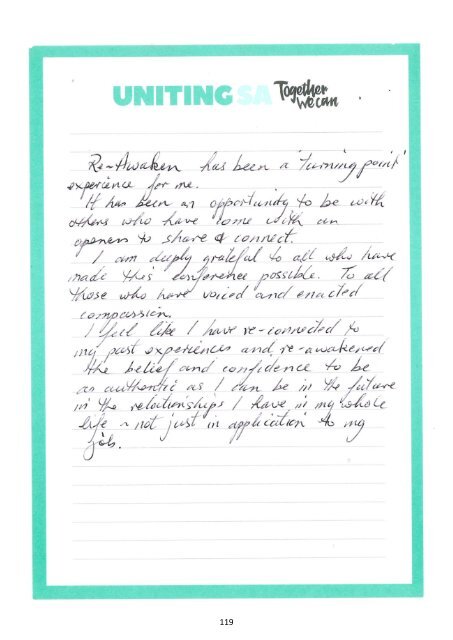 UNITING SA Together We can
Re-Awaken has been a 'turning point'
experience for me.
It has been an opportunity to be with
others who have come with an
openess to share & connect.
I am deeply grateful to all who have
made this conference possible. To all
those who have voiced and enacted
compassion.
I feel like I have re-connected to
my past experiences and re-awakened
the belief and confidence to be
as authentic as I can be in the future
in the relationships I have in my whole
life ~ not just in application to my
job.
119